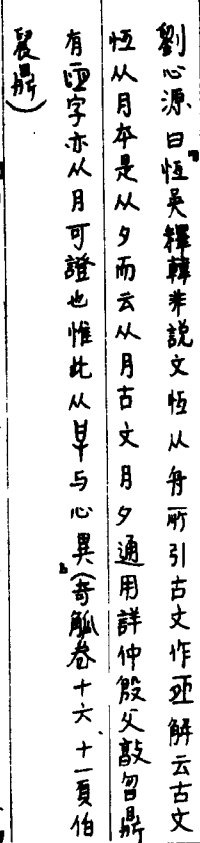 劉心源曰恆吳釋韓非説文恆从舟所引古文作𠄨解云古文
恆从月本是从夕而云从月古文月夕通用詳仲殷父敦曶鼎
有𠄨字亦从月可證也惟此从早与心異(奇觚卷十六、十一頁伯
鼎)